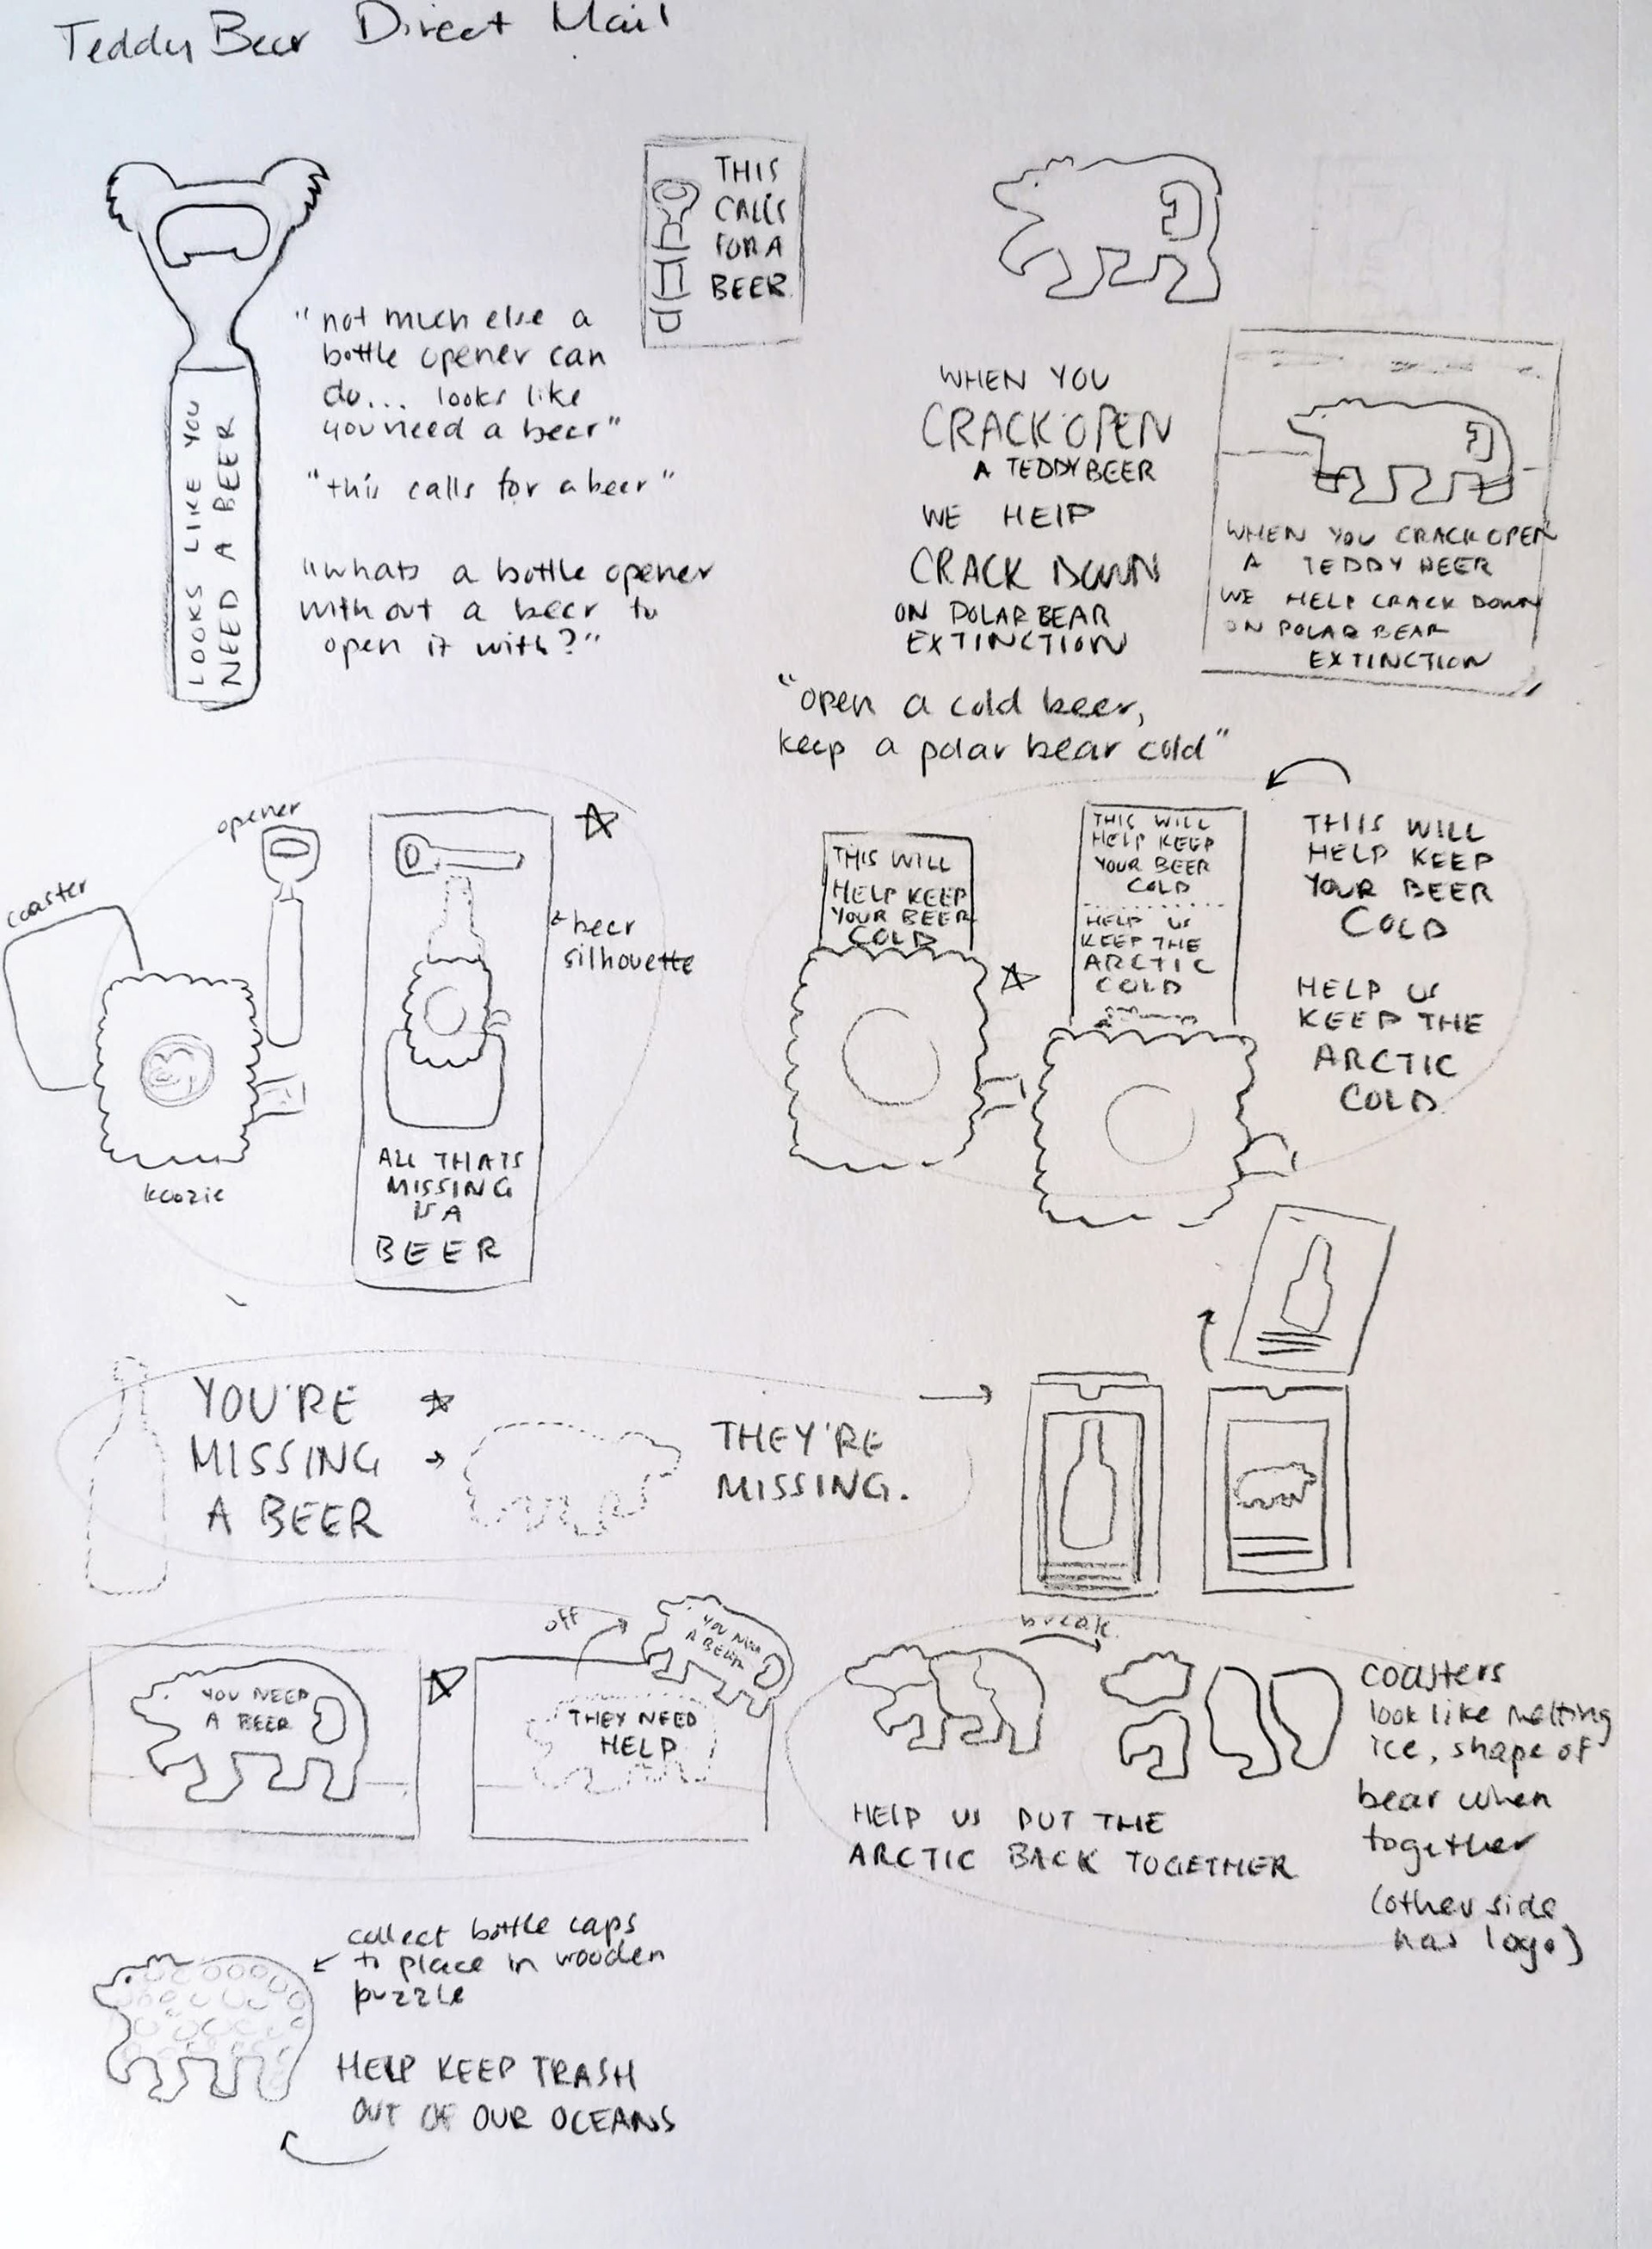 Teddy Beer Direct Mail
LOOKS LIKE YOU
NEED A BEER
"not much else a
bottle opener can
do... looks like
you need a beer"
"this calls for a beer"
"whats a bottle opener
without a beer to
open it with?"
THIS
CALLS
FOR A
BEER.
WHEN YOU
CRACK OPEN
A TEDDY BEER
WE HELP
CRACK DOWN
ON POLAR BEAR
EXTINCTION
WHEN YOU CRACK OPEN
A TEDDY BEER
WE HELP CRACK DOWN
ON POLAR BEAR
EXTINCTION
"open a cold beer,
keep a polar bear cold"
opener
coaster
koozie
beer
silhouette
ALL THATS
MISSING
IS A
BEER
THIS WILL
HELP KEEP
YOUR BEER
COLD
THIS WILL
HELP KEEP
YOUR BEER
COLD
HELP US
KEEP THE
ARCTIC
COLD
THIS WILL
HELP KEEP
YOUR BEER
COLD
HELP US
KEEP THE
ARCTIC
COLD.
YOU'RE
MISSING
A BEER
THEY'RE
MISSING.
YOU NEED
A BEER
off
YOU NEED
A BEER
THEY NEED
HELP
break
HELP US PUT THE
ARCTIC BACK TOGETHER
coasters
look like melting
ice, shape of
bear when
together
(other side
has logo)
collect bottle caps
to place in wooden
puzzle
HELP KEEP TRASH
OUT OF OUR OCEANS